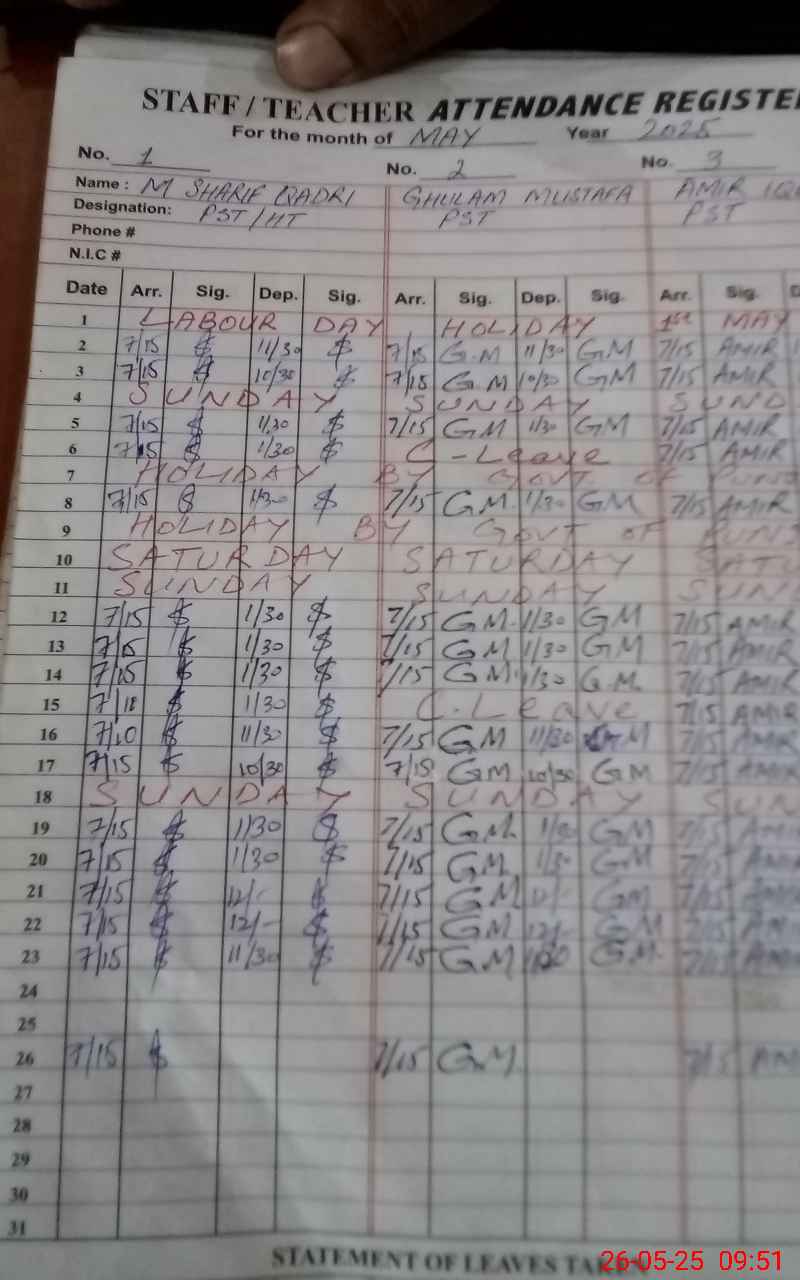 STAFF / TEACHER ATTENDANCE REGISTE
For the month of MAY Year 2025
No. 1 No. 2 No. 3
Name : M SHARIF QADRI GHULAM MUSTAFA AMIR
Designation: PST/HT PST PST
Phone #
N.I.C #
Date Arr. Sig. Dep. Sig. Arr. Sig. Dep. Sig. Arr. Sig.
1 LABOUR DAY HOLIDAY 1st MAY
2 7/15 $ 11/30 $ 7/15 G.M 11/30 GM 7/15 AMIR
3 7/15 $ 10/30 $ 7/15 GM 10/30 GM 7/15 AMIR
4 SUNDAY SUNDAY SUND
5 7/15 $ 1/30 $ 7/15 GM 1/30 GM 7/15 AMIR
6 7/15 $ 1/30 $ C-Leave 7/15 AMIR
7 HOLIDAY BY GOVT OF
8 7/15 $ 1/30 $ 7/15 GM 1/30 GM 7/15 AMIR
9 HOLIDAY BY GOVT OF PUN
10 SATURDAY SATURDAY SATU
11 SUNDAY SUNDAY SUN
12 7/15 $ 1/30 $ 7/15 GM 1/30 GM 7/15 AMIR
13 7/15 $ 1/30 $ 7/15 GM 1/30 GM 7/15 AMIR
14 7/15 $ 1/30 $ 7/15 GM 1/30 G.M 7/15 AMIR
15 7/ $ 1/30 $ C.Leave 7/15 AMIR
16 $ 11/30 $ 7/15 GM 11/30 GM 7/15 AMIR
17 7/15 $ 10/30 $ 7/15 GM 10/30 GM 7/15 AMIR
18 SUNDAY SUNDAY SUN
19 7/15 $ 1/30 $ 7/15 GM GM 7/15
20 7/15 $ 1/30 $ 7/15 GM 1/30 GM 7/15
21 7/15 $ 12/- $ 7/15 GM 12/- GM 7/15
22 7/15 $ 12/- $ 7/15 GM 12/- GM 7/15
23 7/15 $ 11/30 $ 7/15 GM GM 7/15
24
25
26 7/15 $ 7/15 GM 7/15 AM
27
28
29
30
31
STATEMENT OF LEAVES TAKE
26-05-25 09:51